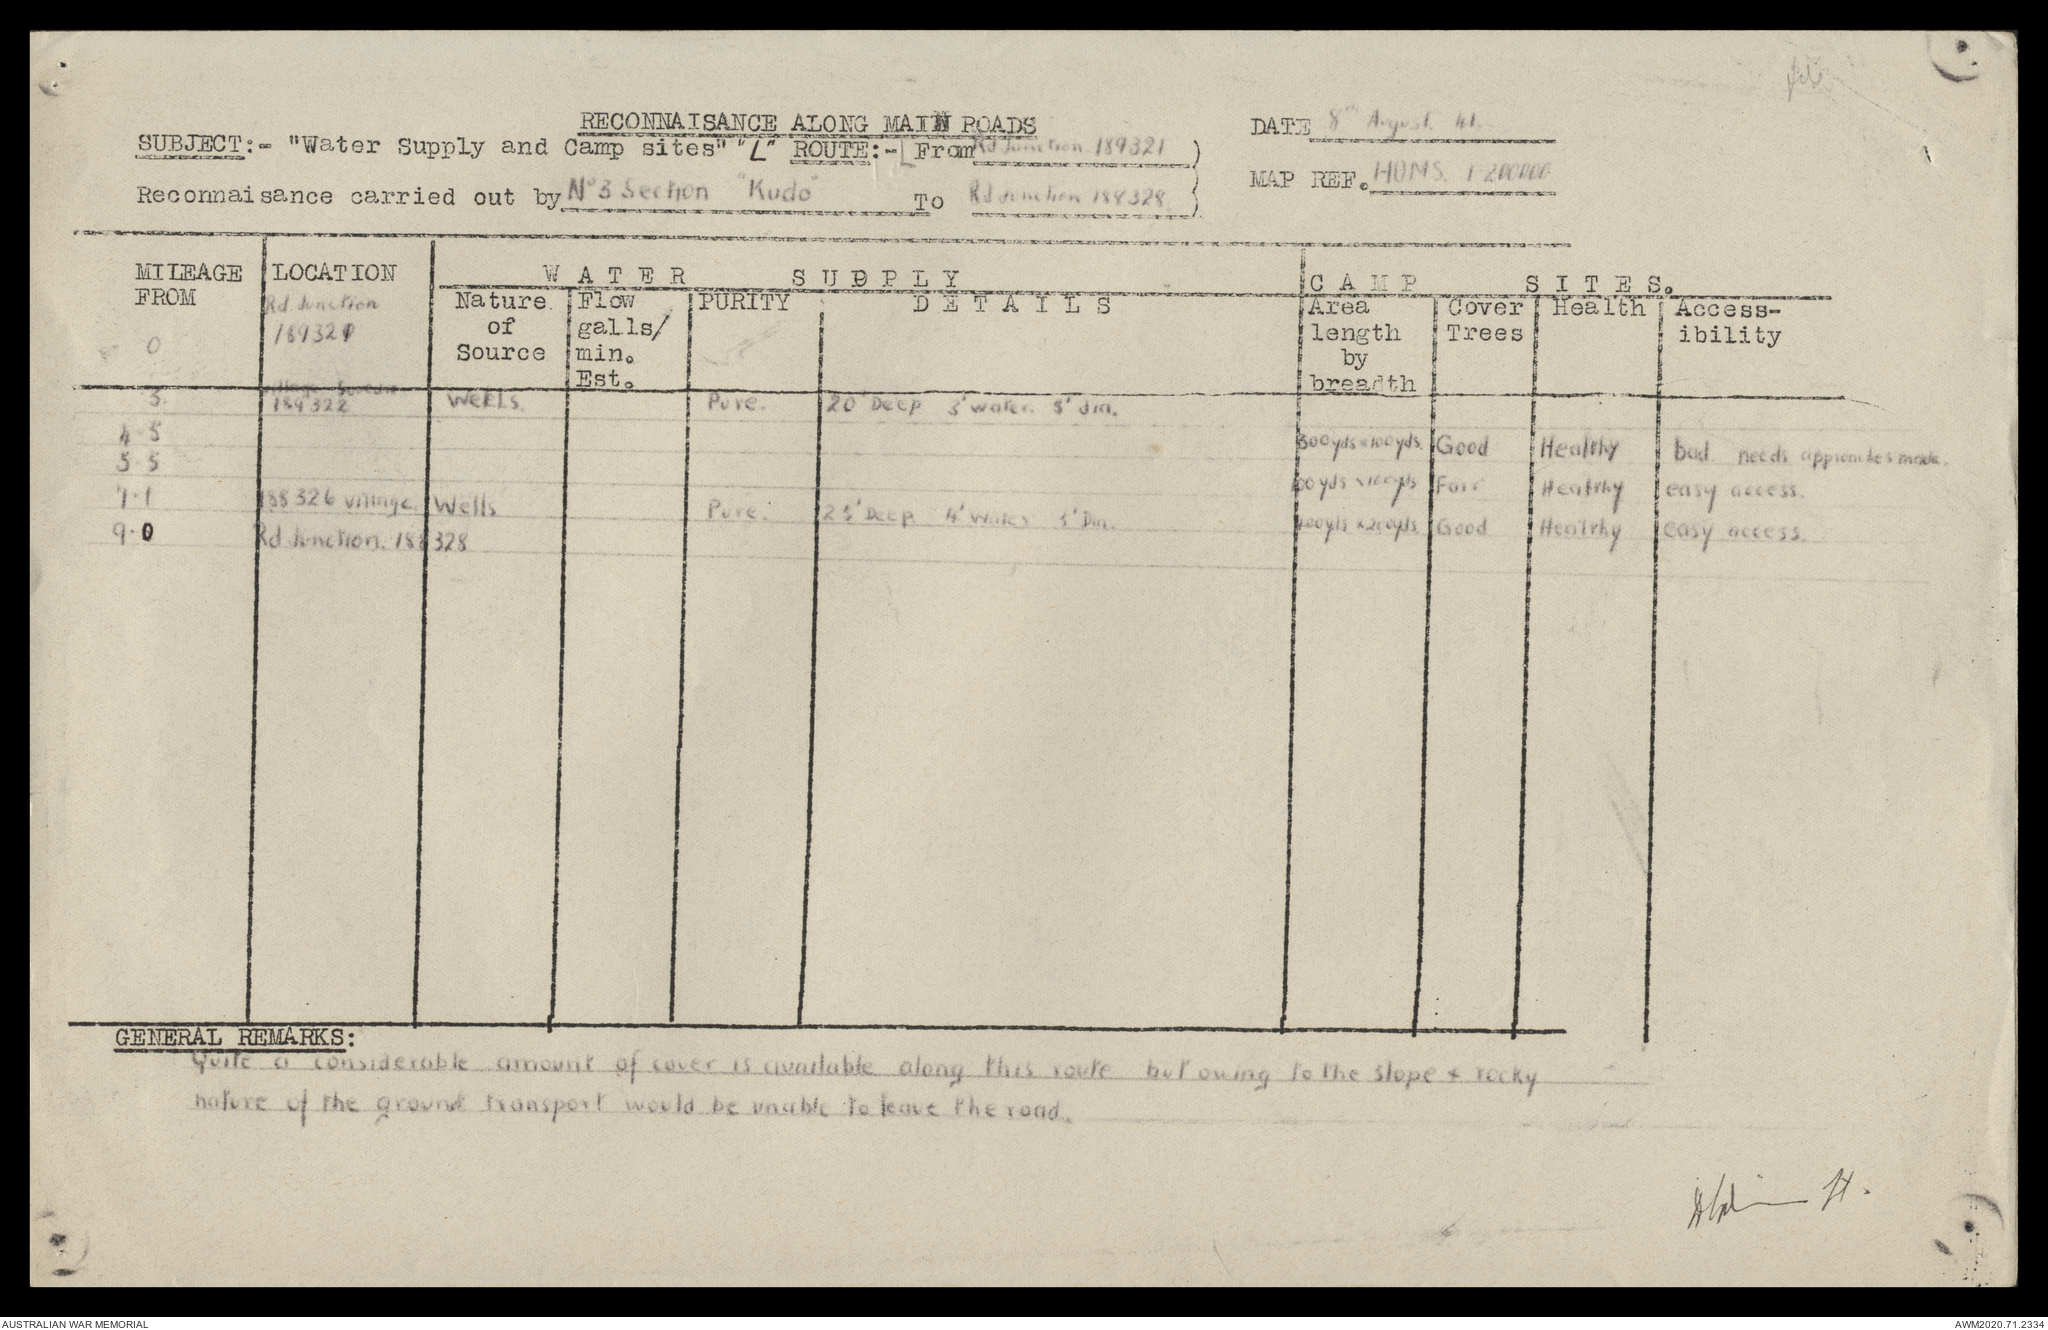 RECONNAISANCE ALONG MAIN ROADS
DATE 8th August. 41.
SUBJECT:- "Water Supply and Camp sites" "L" ROUTE:- From Rd Junction 189321 )
MAP REF. HOMS. 1-200000
Reconnaisance carried out by No 3 Section "Kudo" To Rd Junction 188328 )
MILEAGE FROM LOCATION WATER SUPPLY CAMP SITES.
Rd Junction Nature Flow PURITY DETAILS Area Cover Health Access-
189321 of galls/ length Trees ibility
0 Source min. by
Est. breadth
3. village
189322 Wells. Pure. 20' Deep 3' water. 3' dia.
4.5 300yds x 100yds. Good Healthy bad needs approaches made.
5.5 100yds x 100yds Fair Healthy easy access.
7.1 188326 village. Wells Pure. 25' Deep 4' Water 3' Dia. 400yds x 200yds. Good Healthy easy access.
9.0 Rd Junction. 188328
GENERAL REMARKS:
Quite a considerable amount of cover is available along this route but owing to the slope & rocky
nature of the ground transport would be unable to leave the road.
Lt.
AUSTRALIAN WAR MEMORIAL
AWM2020.71.2334